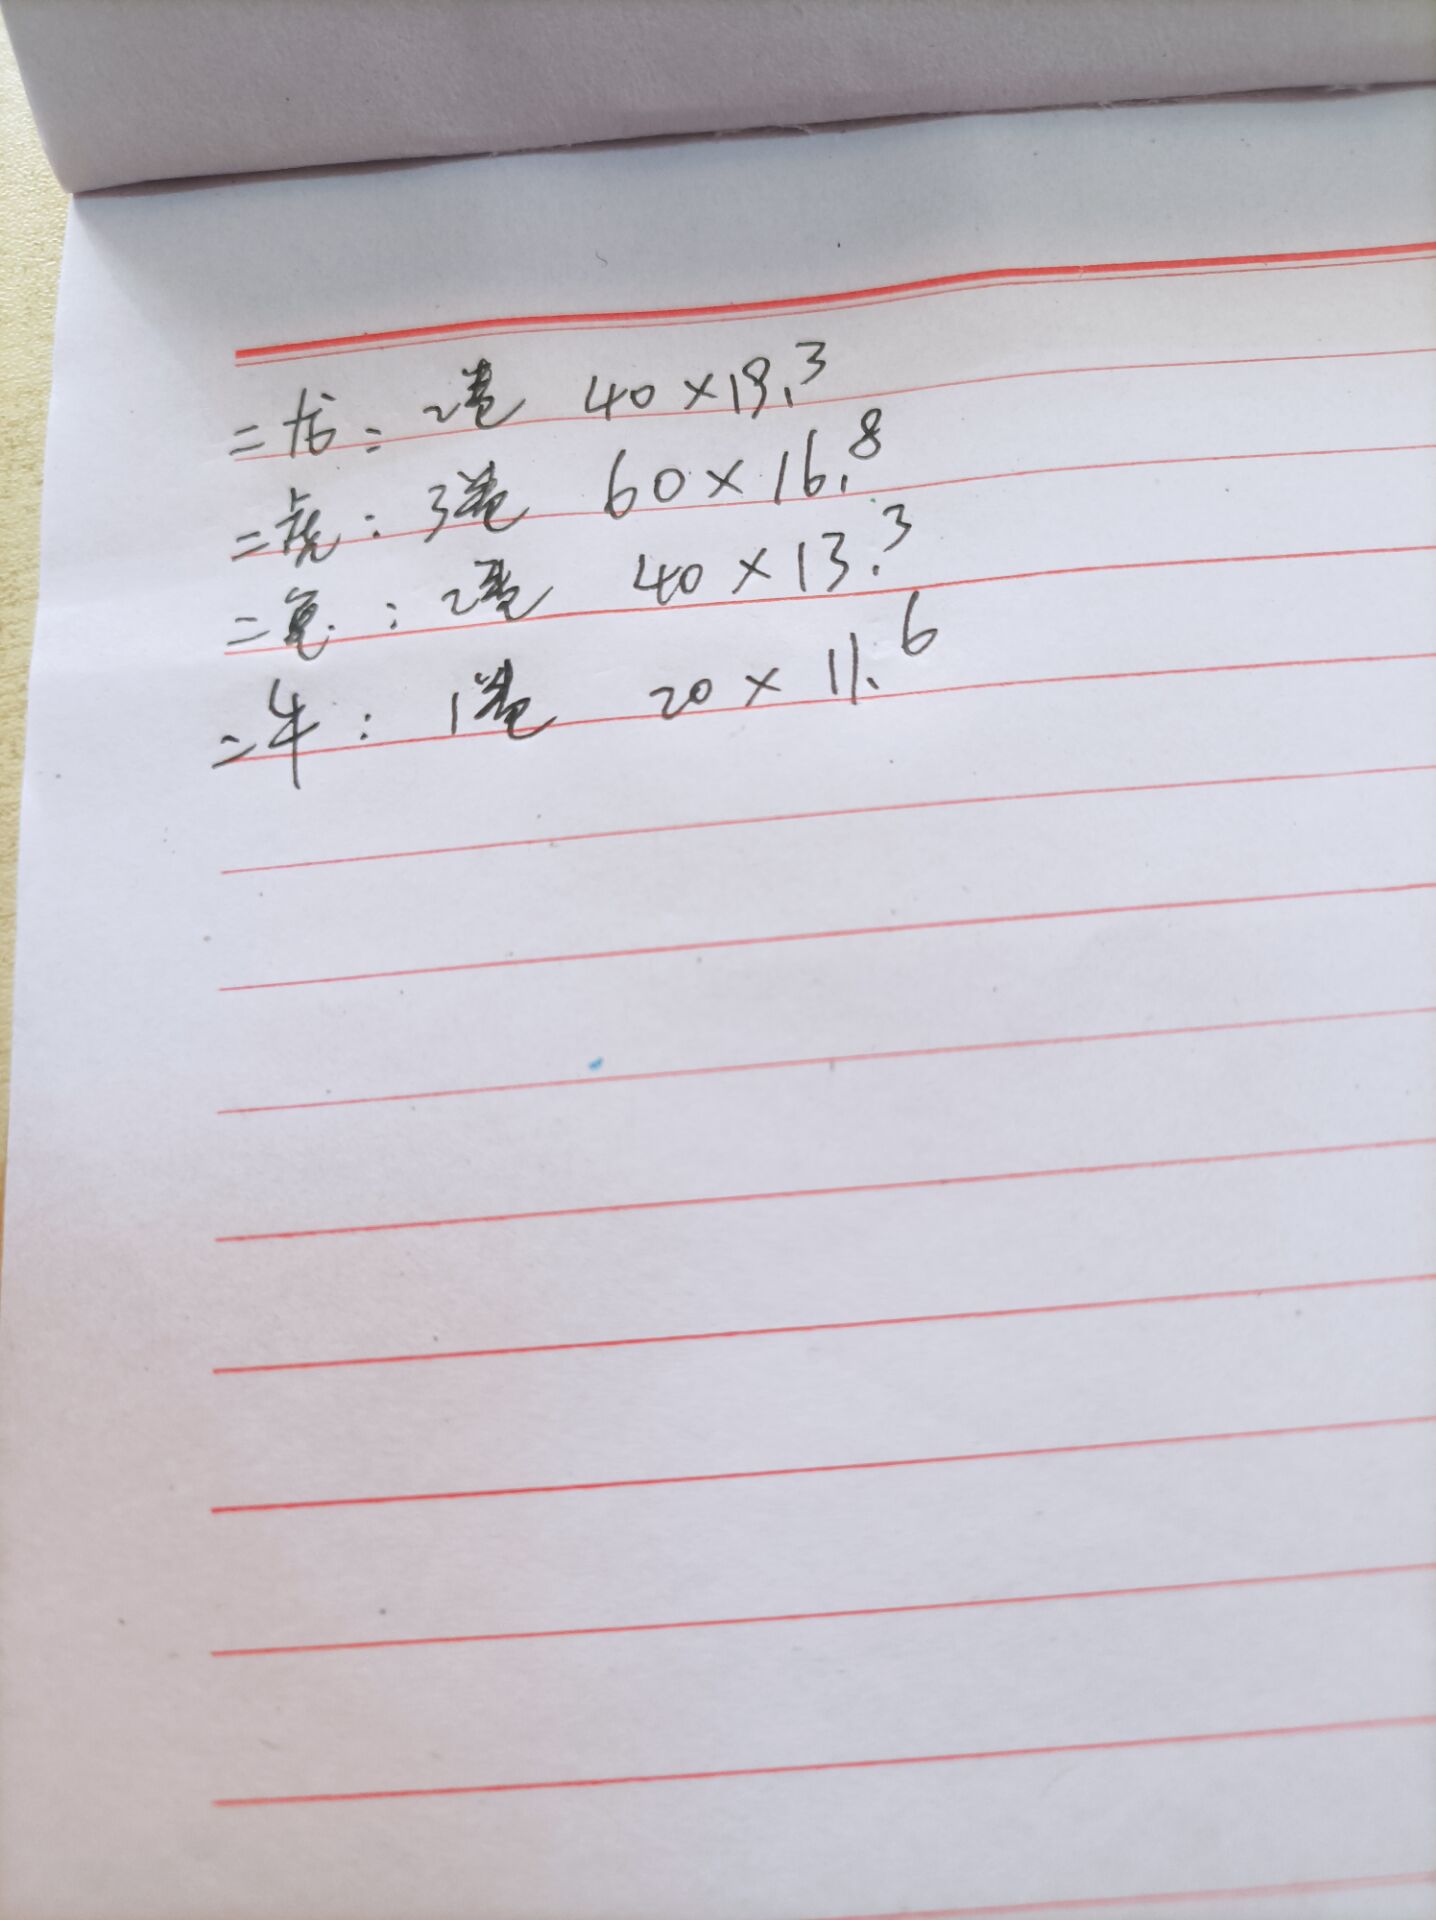 二龙：2卷 40×19.3
二虎：3卷 60×16.8
二兔：2卷 40×13.3
二牛：1卷 20×11.6